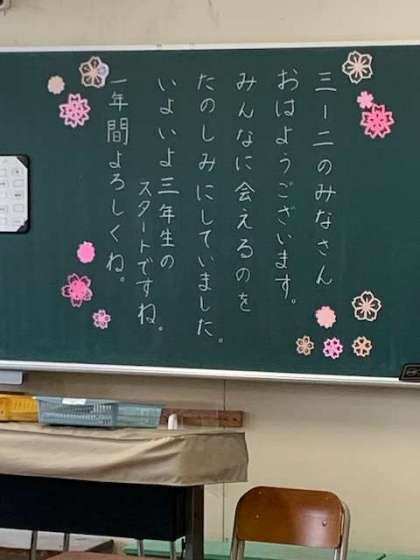 三ー二のみなさん
おはようございます。
みんなに会えるのを
たのしみにしていました。
いよいよ三年生の
スタートですね。
一年間よろしくね。